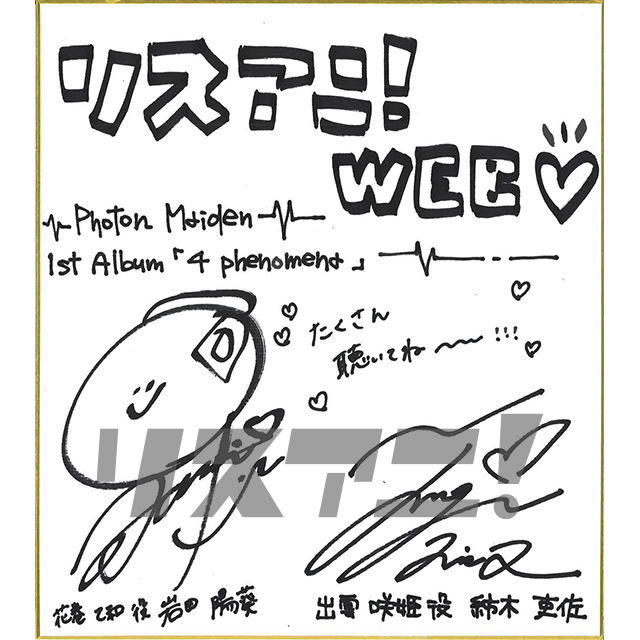 リスアニ!
WEB
Photon Maiden
1st Album「4 phenomena」
たくさん
聴いてね〜〜!!!
リスアニ!
花巻 乙和 役 岩田 陽葵
出雲 咲姫 役 紡木 吏佐